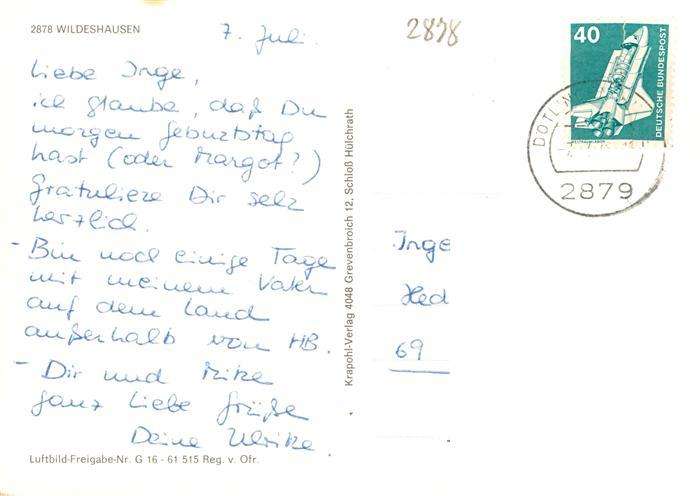 2878 WILDESHAUSEN
7. Juli.
2878
Liebe Inge,
ich glaube, daß Du
morgen Geburtstag
hast (oder Margot?)
Gratuliere Dir sehr
herzlich.
- Bin noch einige Tage
mit meinem Vater
auf dem Land
außerhalb von HB.
- Dir und Mike
ganz liebe Grüße
Deine Ulrike.
Luftbild-Freigabe-Nr. G 16 - 61 515 Reg. v. Ofr.
Krapohl-Verlag 4048 Grevenbroich 12, Schloß Hülchrath
40
DEUTSCHE BUNDESPOST
DOTL
2879
Inge
Hed
69